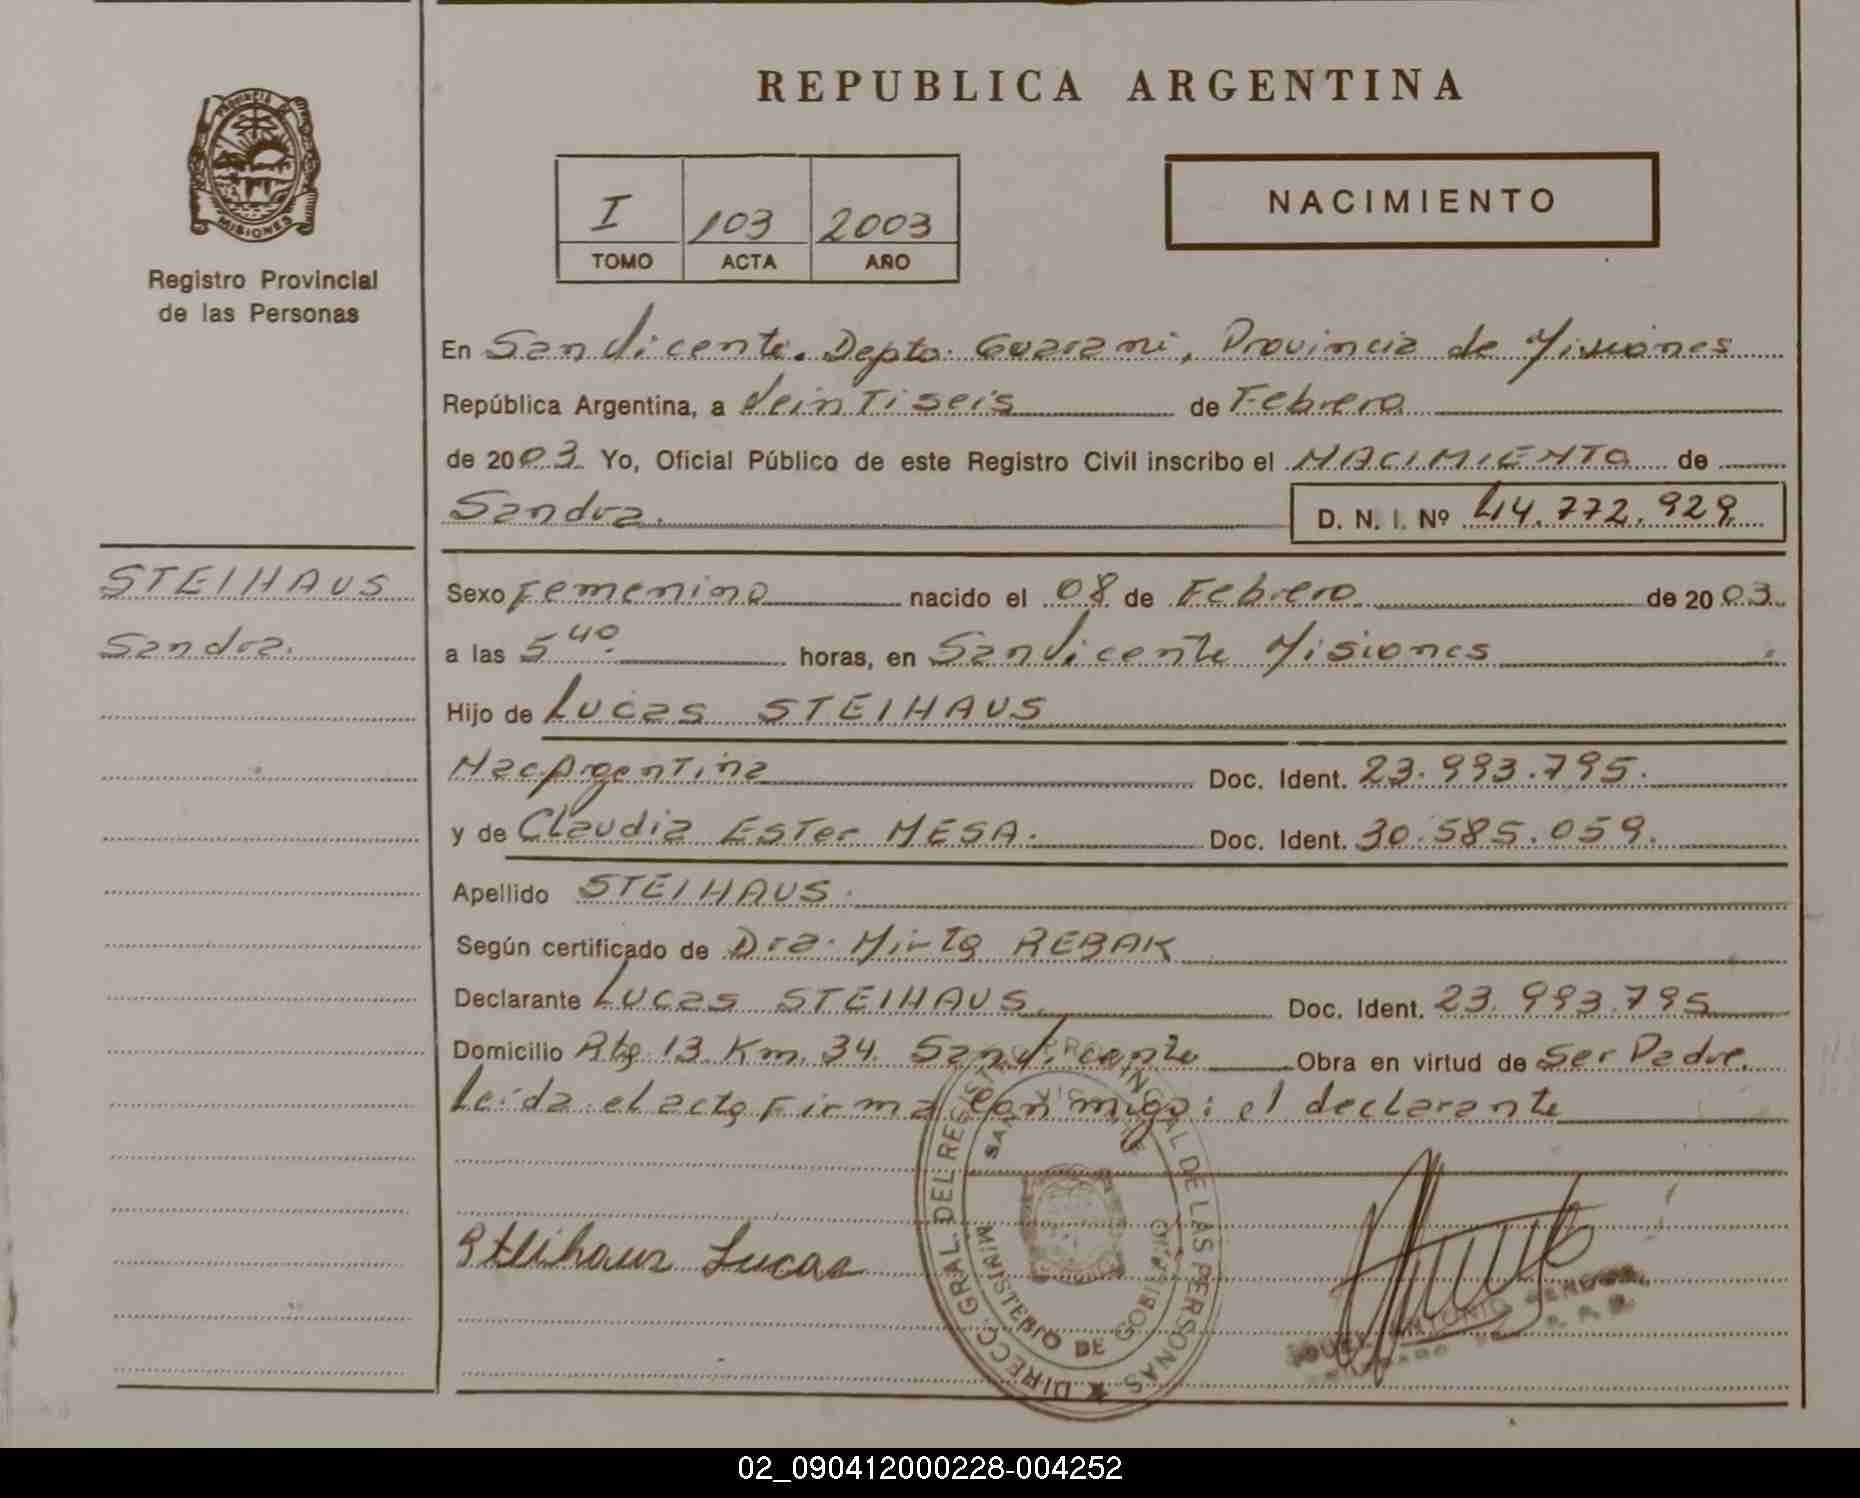 REPUBLICA ARGENTINA
PROVINCIA
MISIONES
Registro Provincial
de las Personas
I 103 2003
TOMO ACTA AÑO
NACIMIENTO
En San Vicente. Depto. Guarani, Provincia de Misiones
República Argentina, a Veintiseis de Febrero
de 2003. Yo, Oficial Público de este Registro Civil inscribo el NACIMIENTO de
Sandra. D. N. I. Nº 44.772.929
STEIHAUS
Sandra.
Sexo Femenino nacido el 08 de Febrero de 2003.
a las 5 40 horas, en San Vicente Misiones
Hijo de Lucas STEIHAUS
Nac Argentina Doc. Ident. 23.993.795.
y de Claudia Ester MESA. Doc. Ident. 30.585.059.
Apellido STEIHAUS.
Según certificado de Dra. Mirta REBAK
Declarante Lucas STEIHAUS Doc. Ident. 23.993.795
Domicilio Rta 13 Km. 34. San Vicente Obra en virtud de Ser Padre.
leida el acta Firma con migo: el declarante
Steihaus Lucas
DIRECC. GRAL. DEL REGISTRO PROVINCIAL DE LAS PERSONAS
SAN VICENTE
MINISTERIO DE GOBIERNO
ANTONIO
02_090412000228-004252